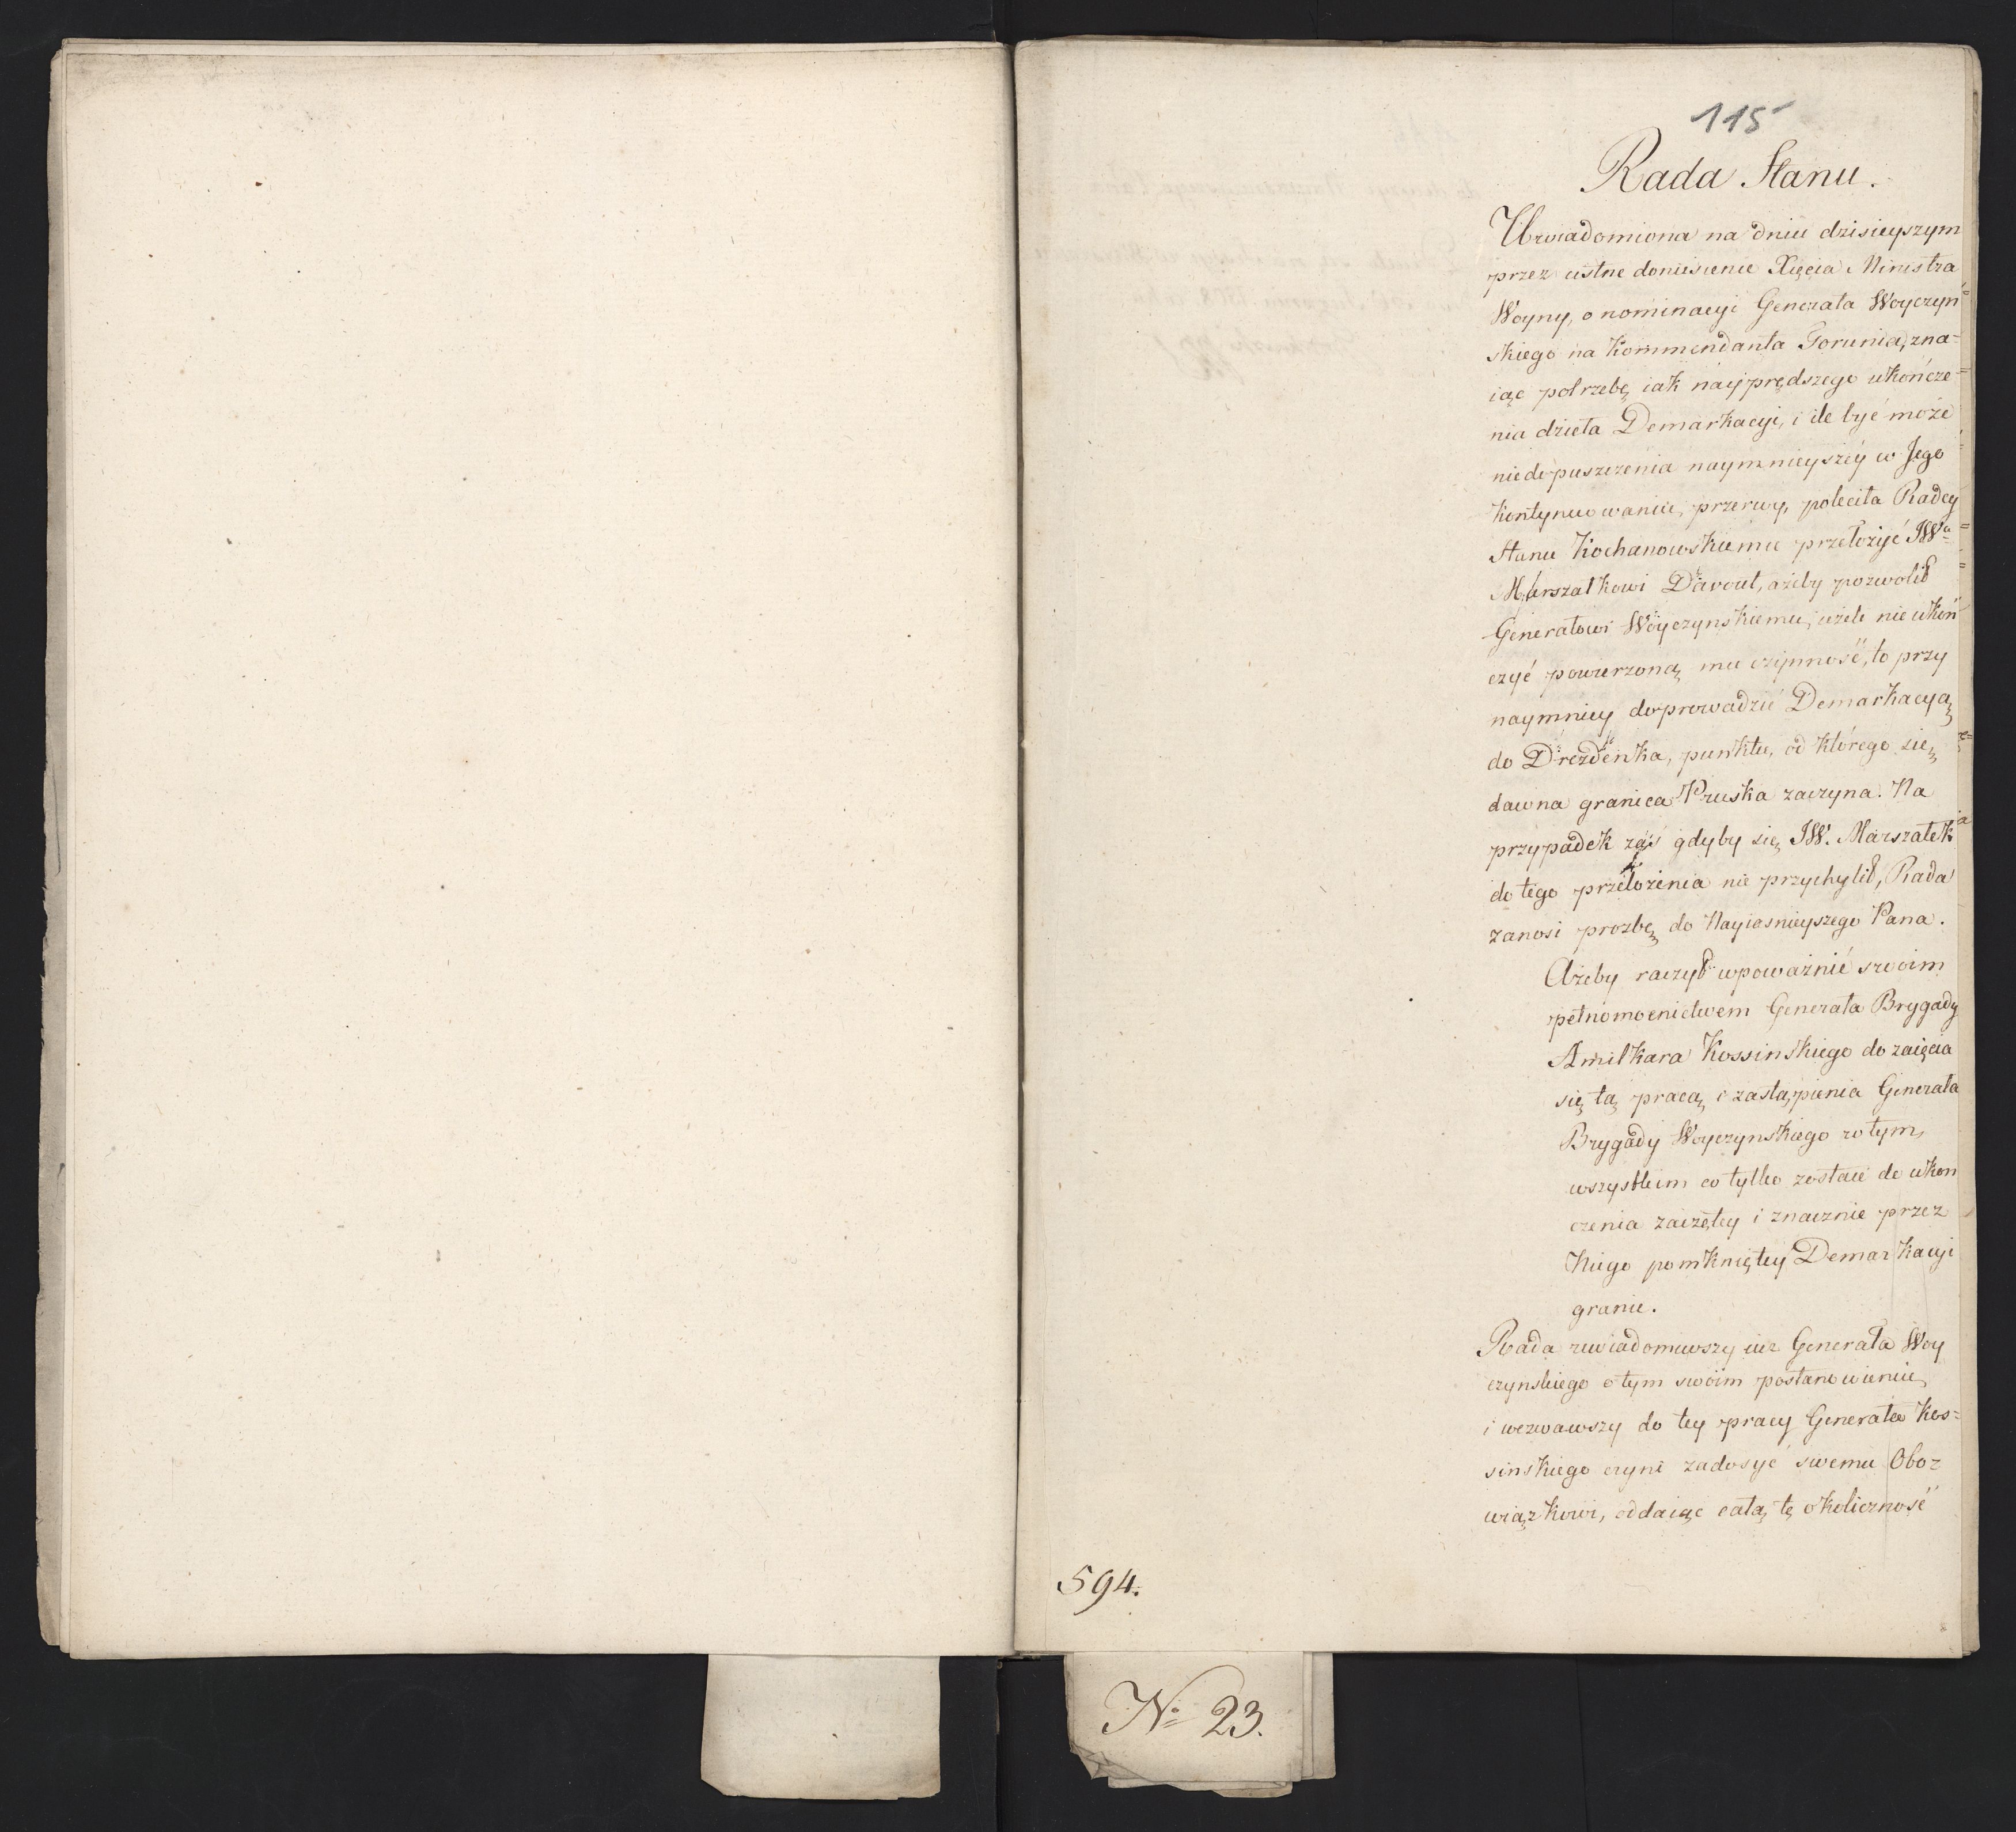 115
Rada Stanu.
Uwiadomiona na dniu dzisieyszym
przez ustne doniesienie Xięcia Ministra
Woyny, o nominacyi Generała Woyczyń=
skiego na Kommendanta Torunia, zna=
iąc potrzebę iak nayprędszego ukończe=
nia dzieła Demarkacyi, i ile być może
niedopuszczenia naymnieyszéy w Jego
kontynuowaniu, przerwy, poleciła Radcy
Stanu Kochanowskiemu przełożyć JWu
Marszałkowi Davout, ażeby pozwolił
Generałowi Woyczynskiemu, ieżeli nie ukoń
czyć powierzoną mu czynność, to przy
naymniey doprowadzić Demarkacyą
do Drezdenka, punktu, od którego się
dawna granica Pruska zaczyna. Na
przypadek zaś gdyby się JW. Marszałek
do tego przełożenia nie przychylił, Rada
zanosi prozbę do Nayiasnieyszego Pana.
Ażeby raczył upoważnić swoim
pełnomocnictwem Generała Brygady
Amilkara Kossinskiego do zaięcia
się tą pracą i zastąpienia Generała
Brygady Woyczynskiego w tym,
wszystkim co tylko zostaie do ukon
czenia zaczętey i znacznie przez
Niego pomkniętey Demarkacyi
granic.
Rada zwiadomiwszy iuz Generała Woy
czynskiego o tym swoim postanowieniu,
i wezwawszy do tey pracy Generała Kos=
sinskiego czyni zadosyć swemu Obo=
wiązkowi, oddaiąc całą tę okoliczność
594.
No 23.